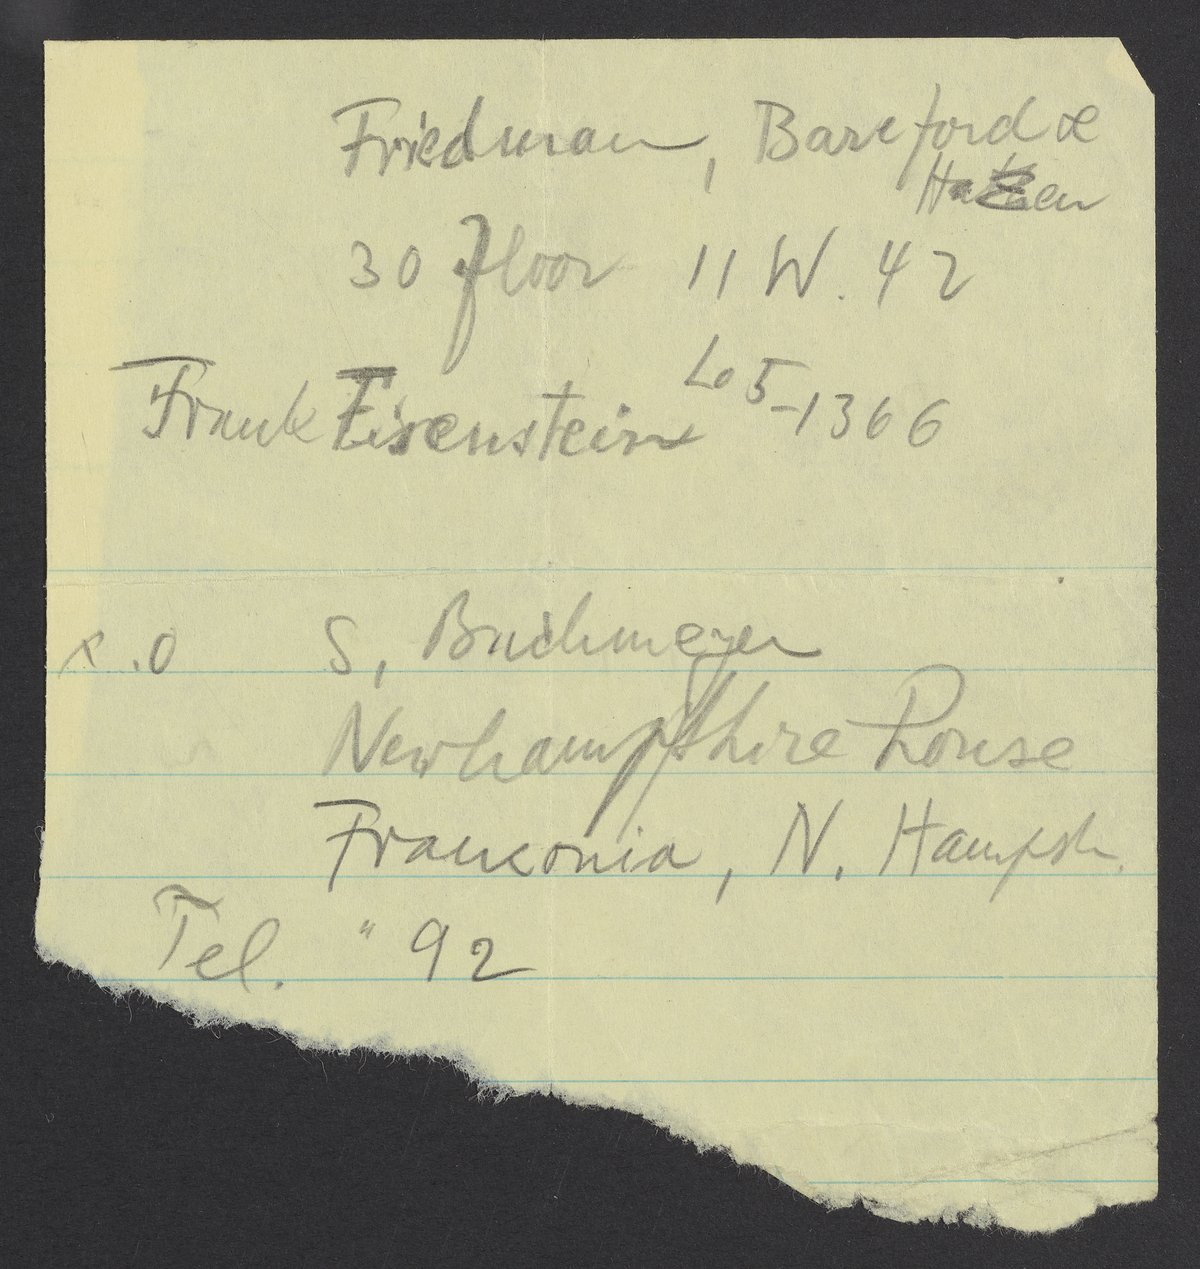 Friedman, Bareford &
Hazen
30 floor 11 W. 42
Frank Eisenstein Lo 5-1366
S. Buchmeyer
Newhampshire House
Franconia, N. Hampsh.
Tel. " 92